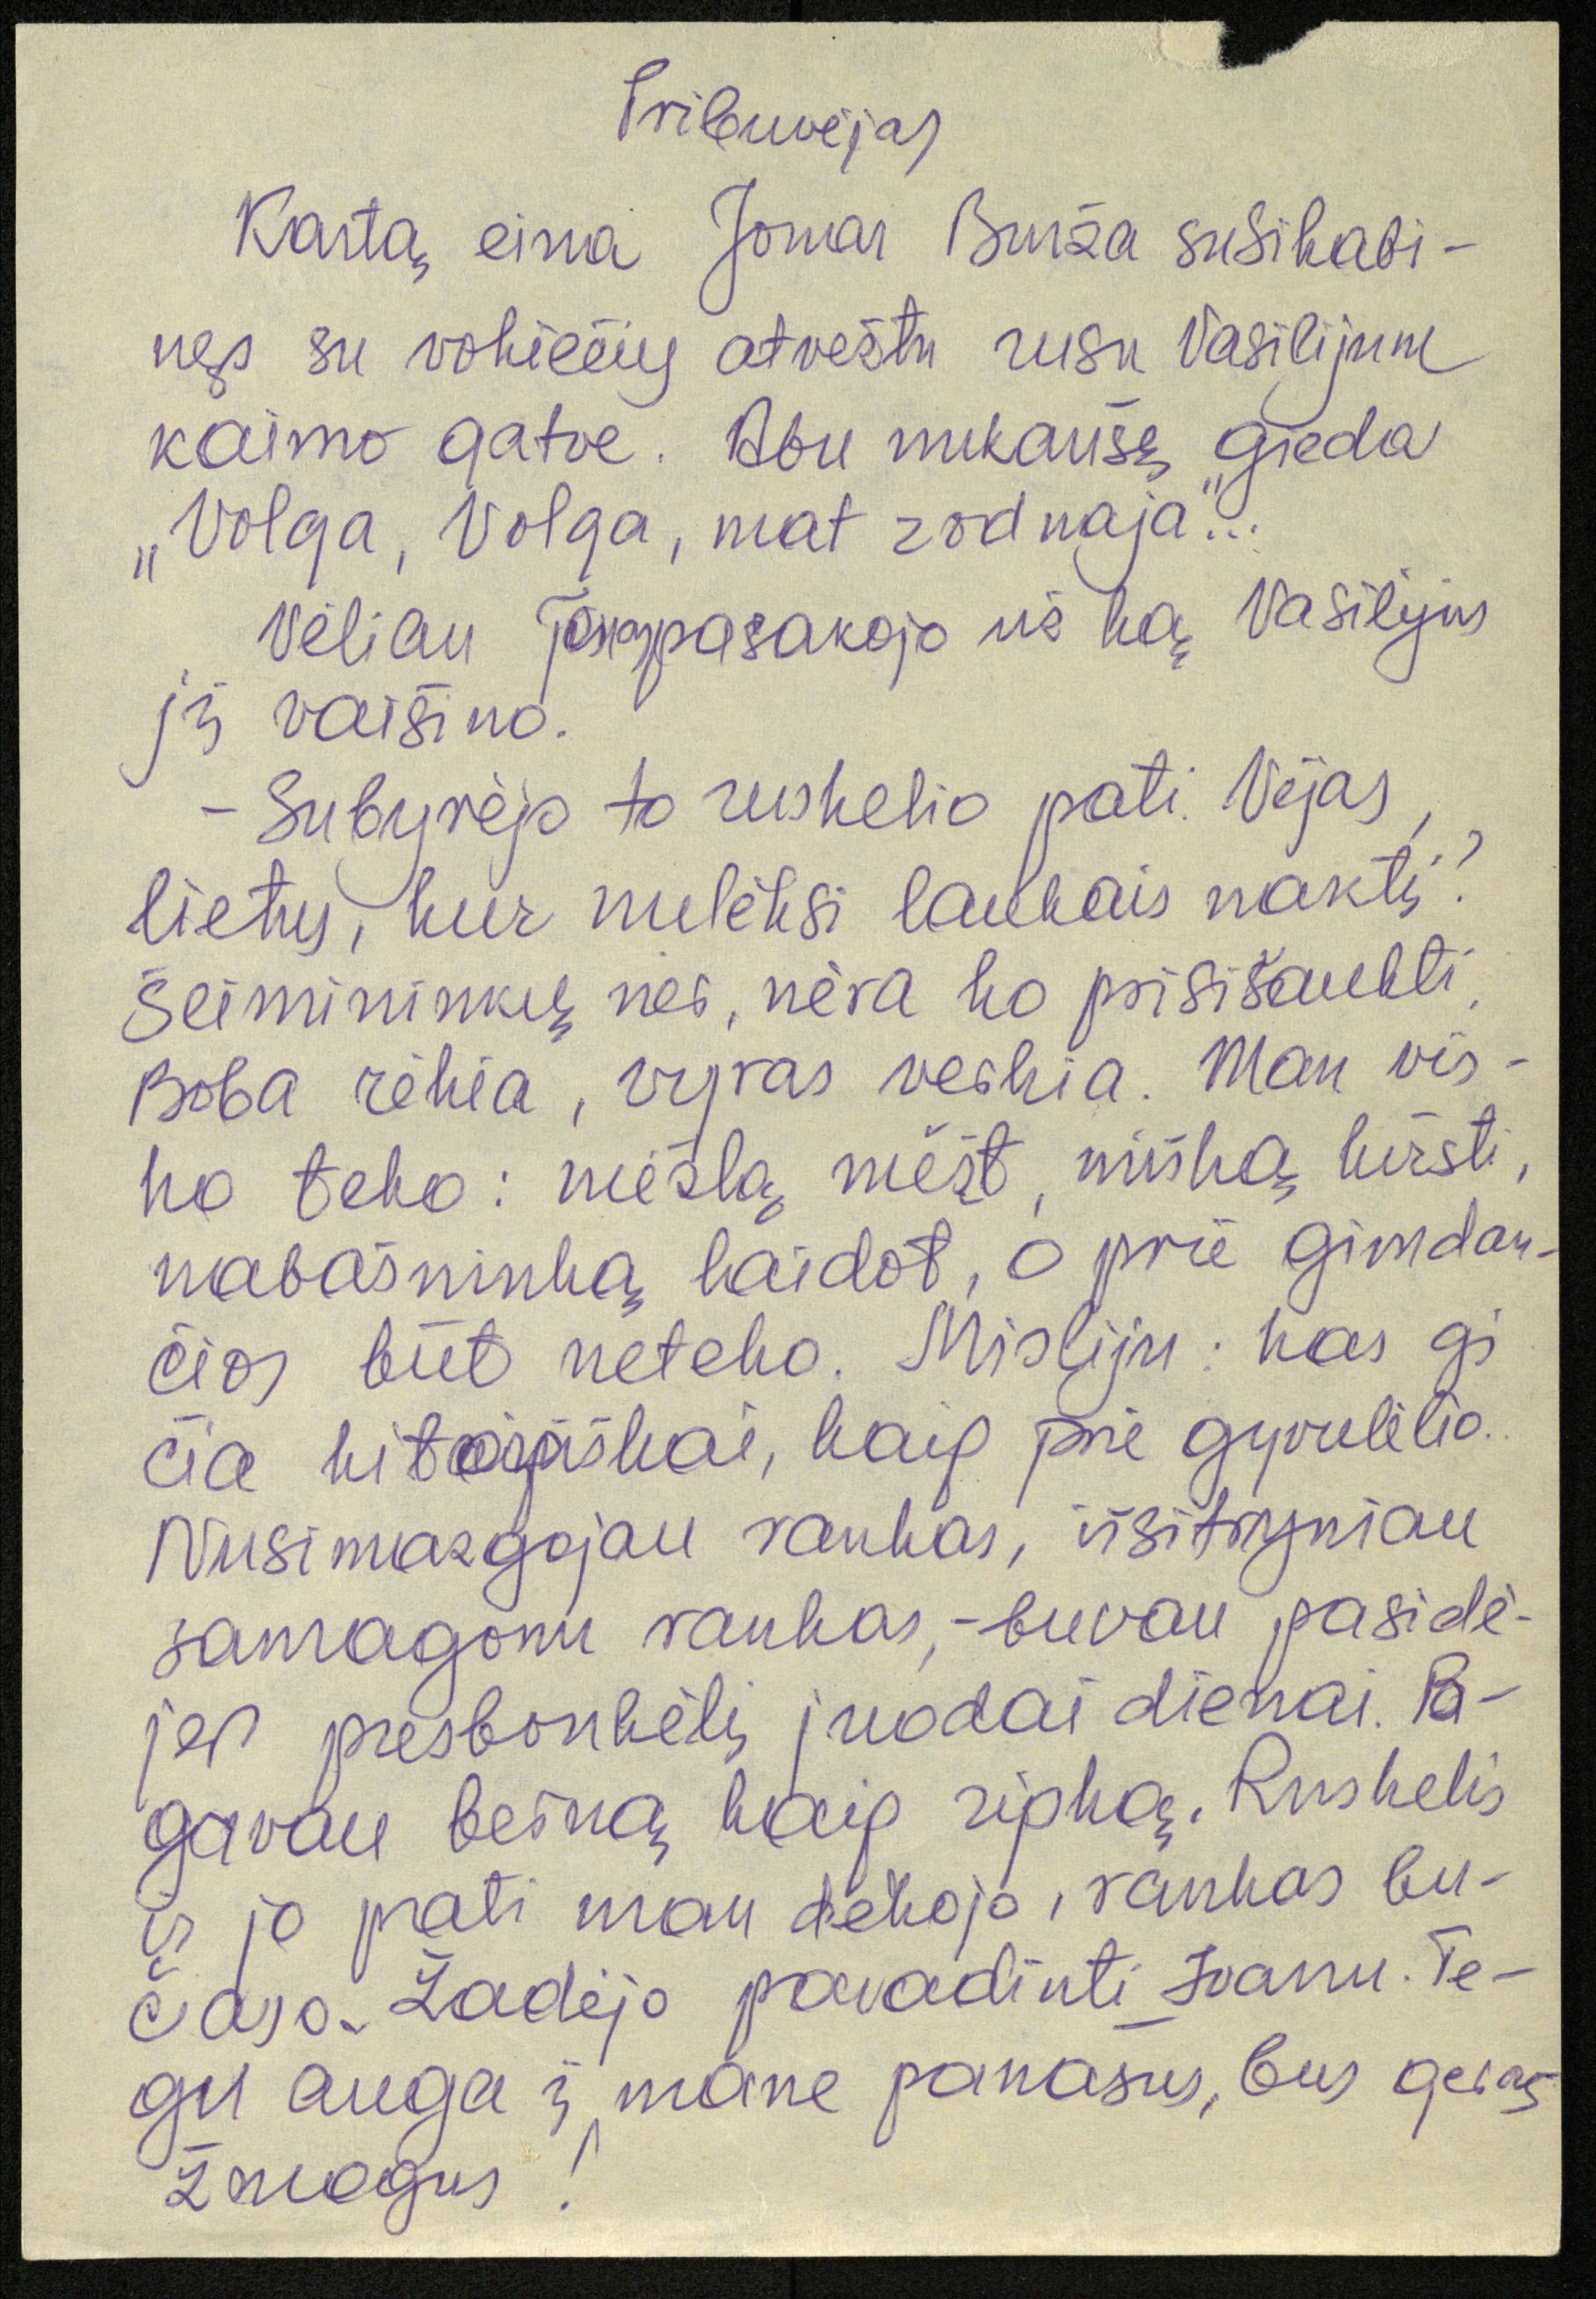 Pribuvėjas
Kartą eina Jonas Burža susikabi-
nęs su vokiečių atvežtu rusu Vasilijum
kaimo gatve. Abu nukaušę gieda
„Volga, Volga, mat rodnaja"...
Vėliau Jonas pasakojo už ką Vasilijus
jį vaišino.
- Subyrėjo to ruskelio pati. Vėjas,
lietus, kur nulėksi laukais naktį?
Šeimininkų nei, nėra ko prisišaukti.
Boba rėkia, vyras verkia. Man vis-
ko teko: mėšlą mėžt, mišką kirsti,
nabašninką laidot, o prie gimdan-
čios būt neteko. Misliju: kas gi
čia kitoniškai, kaip prie gyvulėlio.
Nusimazgojau rankas, išsitryniau
samagonu rankas, - buvau pasidė-
jęs presbonkėlį juodai dienai. Pa-
gavau berną kaip ripką. Ruskelis
ir jo pati man dėkojo, rankas bu-
čiavo. Žadėjo pavadinti Ivanu. Te-
gu auga į mane panašus, bus geras
žmogus!